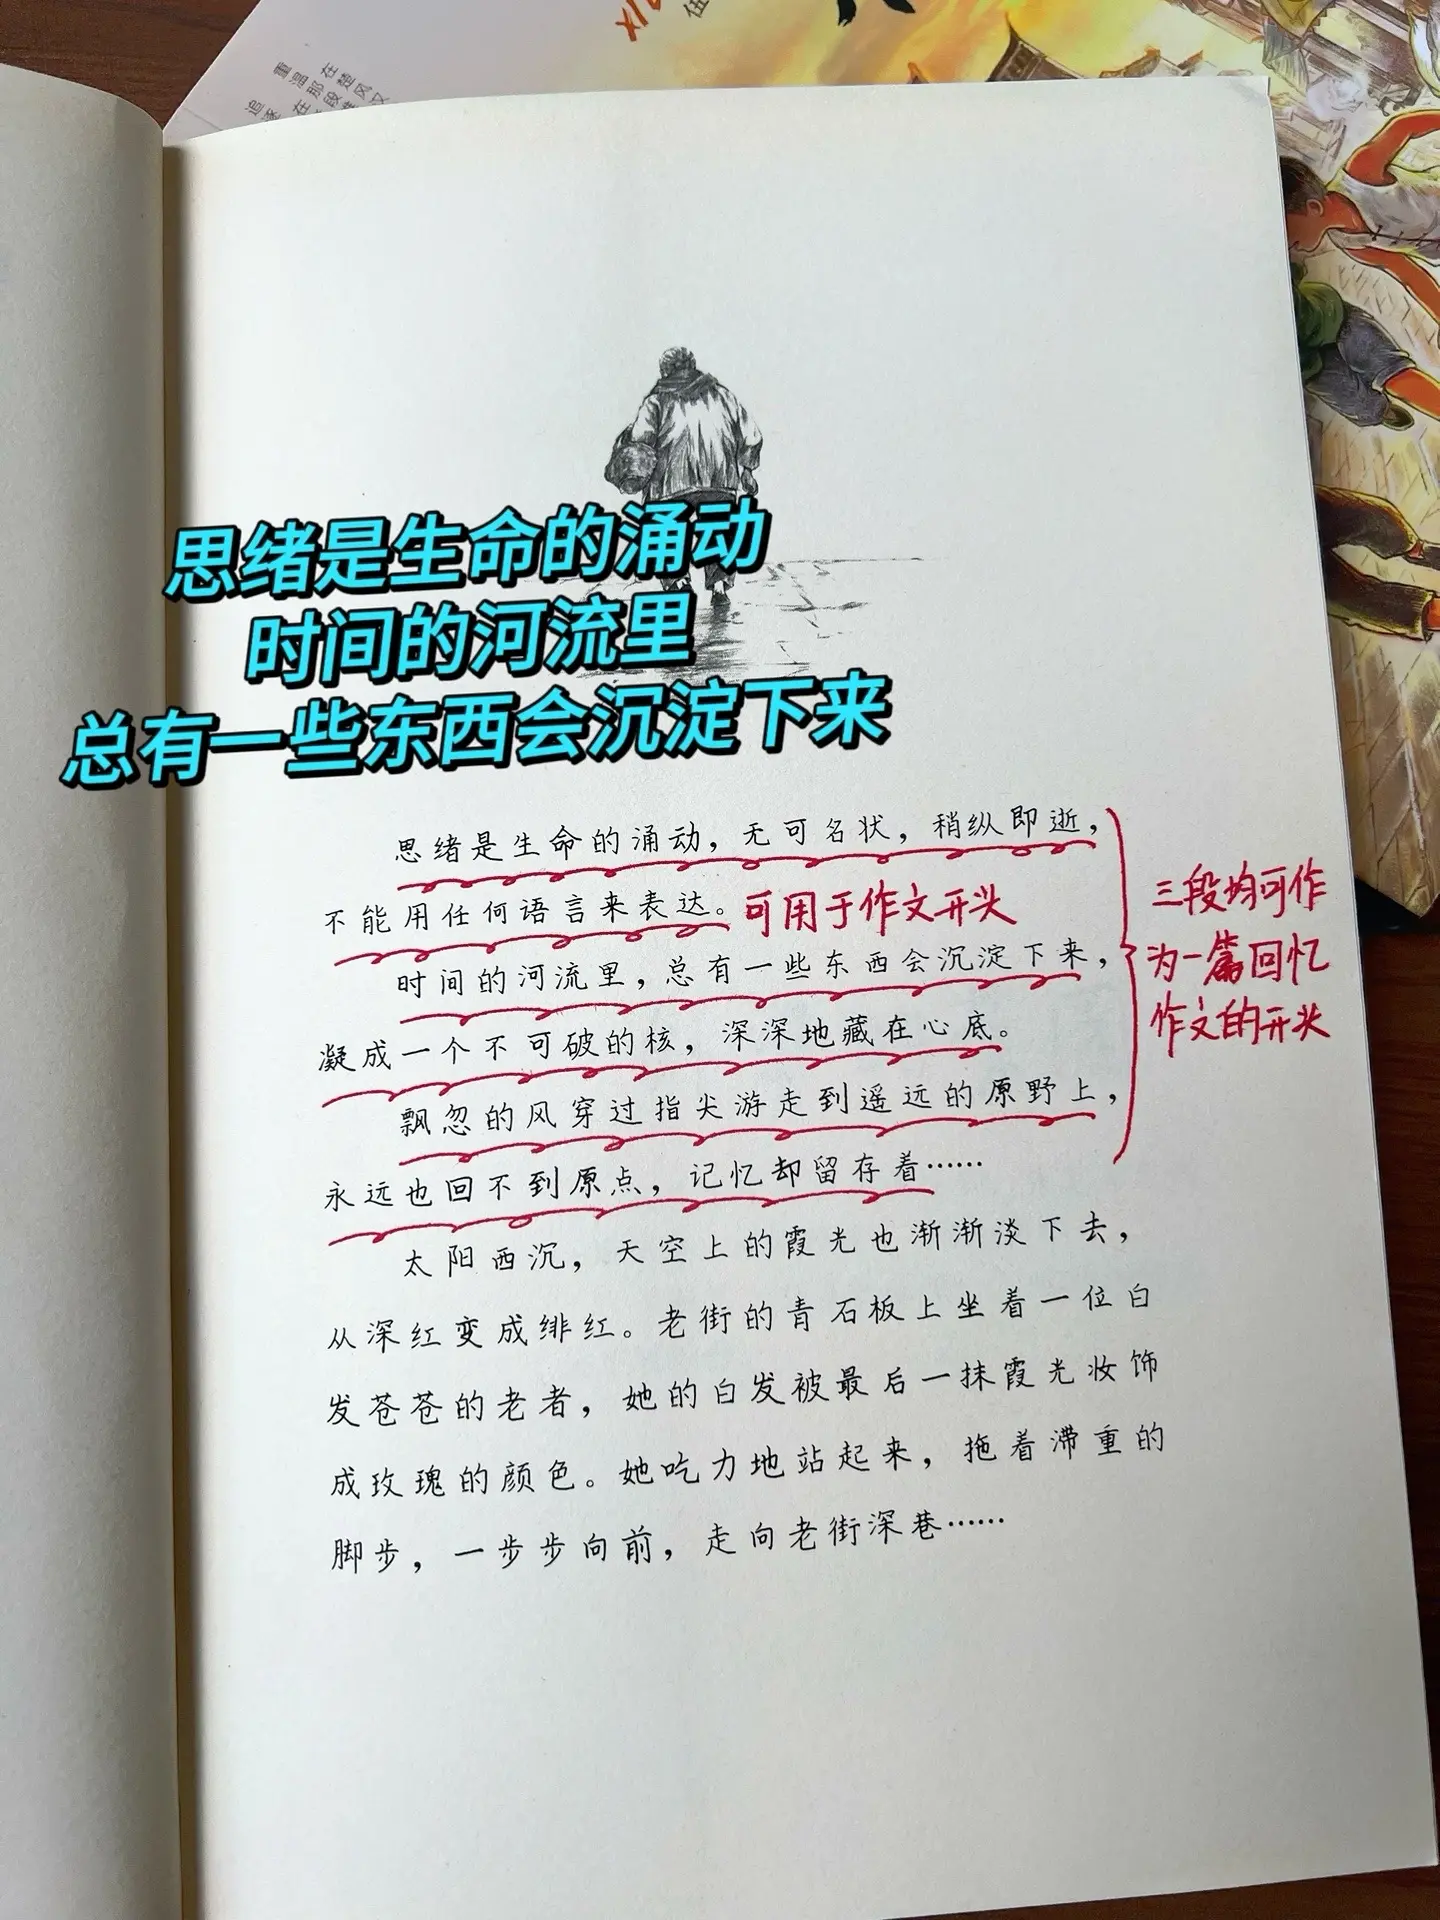 在楚风汉
重温那段
追逐
在
伍
思绪是生命的涌动
时间的河流里
总有一些东西会沉淀下来
思绪是生命的涌动，无可名状，稍纵即逝，
不能用任何语言来表达。可用于作文开头
时间的河流里，总有一些东西会沉淀下来，
凝成一个不可破的核，深深地藏在心底。
飘忽的风穿过指尖游走到遥远的原野上，
永远也回不到原点，记忆却留存着……
三段均可作
为一篇回忆
作文的开头
太阳西沉，天空上的霞光也渐渐淡下去，
从深红变成绯红。老街的青石板上坐着一位白
发苍苍的老者，她的白发被最后一抹霞光妆饰
成玫瑰的颜色。她吃力地站起来，拖着滞重的
脚步，一步步向前，走向老街深巷……